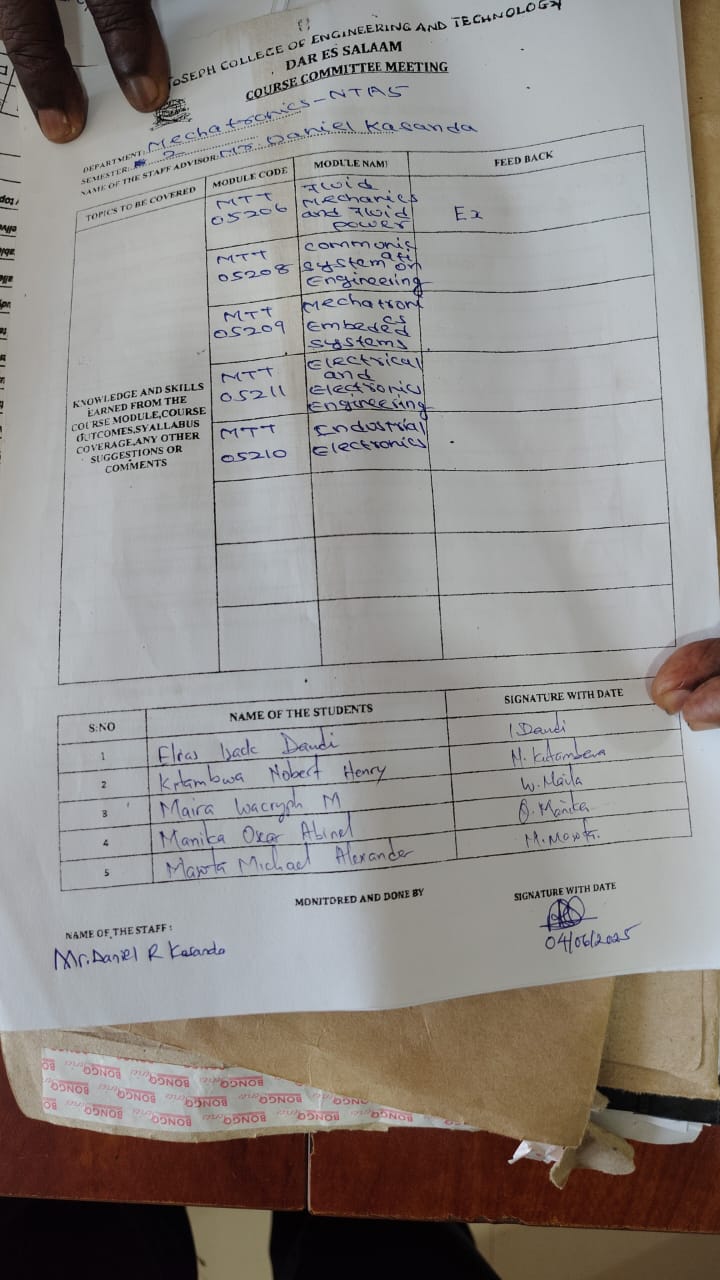 JOSEPH COLLEGE OF ENGINEERING AND TECHNOLOGY
DAR ES SALAAM
COURSE COMMITTEE MEETING
DEPARTMENT: Mechatronics - NTA5
SEMESTER: 2
NAME OF THE STAFF ADVISOR: Mr. Daniel Kasanda
TOPICS TO BE COVERED MODULE CODE MODULE NAME FEED BACK
MTT 05206 Fluid Mechanics and Fluid power Ex
MTT 05208 Communicati on system Engineering
MTT 05209 Mechatroni cs Embeded systems
MTT 05211 Electrical and Electronics Engineering
MTT 05210 Industrial Electronics
KNOWLEDGE AND SKILLS
EARNED FROM THE
COURSE MODULE,COURSE
OUTCOMES,SYALLABUS
COVERAGE,ANY OTHER
SUGGESTIONS OR
COMMENTS
S:NO NAME OF THE STUDENTS SIGNATURE WITH DATE
1 Elias Isack Daudi I.Daudi
2 Kitambwa Nobert Henry N. Kitambwa
3 Maira M W. Maila
4 Manika Oscar Abinel O. Manika
5 Michael Alexander
MONITORED AND DONE BY
SIGNATURE WITH DATE
NAME OF THE STAFF:
Mr. Daniel R Kasanda
04/06/2025
BONGO BONGO BONGO BONGO BONGO
BONGO BONGO BONGO BONGO BONGO